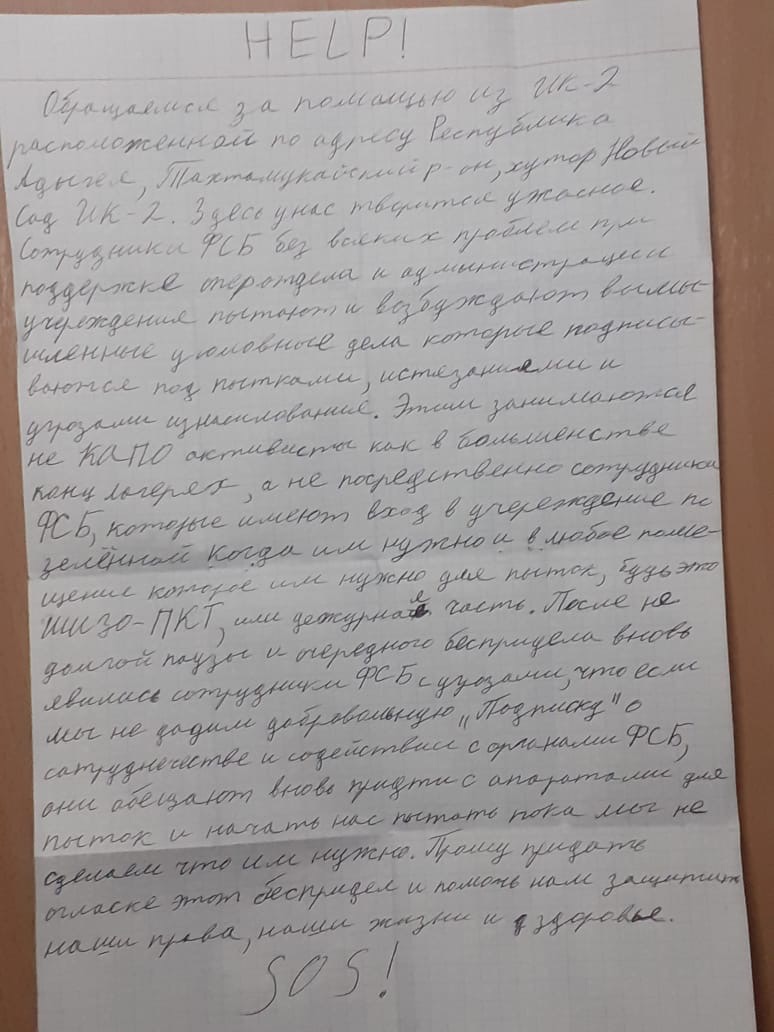 HELP!
Обращаемся за помощью из ИК-2
расположенной по адресу Республика
Адыгея, Тахтамукайский р-он, хутор Новый
Сад ИК-2. Здесь у нас творится ужасное.
Сотрудники ФСБ без всяких проблем при
поддержке оперотдела и администрации
учереждения пытают и возбуждают вымы-
шленные уголовные дела которые подписы-
ваются под пытками, истязаниями и
угрозами изнасилования. Этим занимаются
не КАПО активисты как в большенстве
конц лагерех, а не посредственно сотрудники
ФСБ, которые имеют вход в учереждение по
зелённой когда им нужно и в любое поме-
щение которое им нужно для пыток, будь это
ШИЗО-ПКТ, или дежурная часть. После не
долгой паузы и очередного беспридела вновь
явились сотрудники ФСБ с угрозами, что если
мы не дадим добровольную „Подписку" о
сотруднечестве и содействии с органами ФСБ,
они обещают вновь придти с апаратами для
пыток и начать нас пытать пока мы не
сделаем что им нужно. Прошу придать
огласке этот беспридел и помочь нам защитить
наши права, наши жизни и здоровье.
SOS!